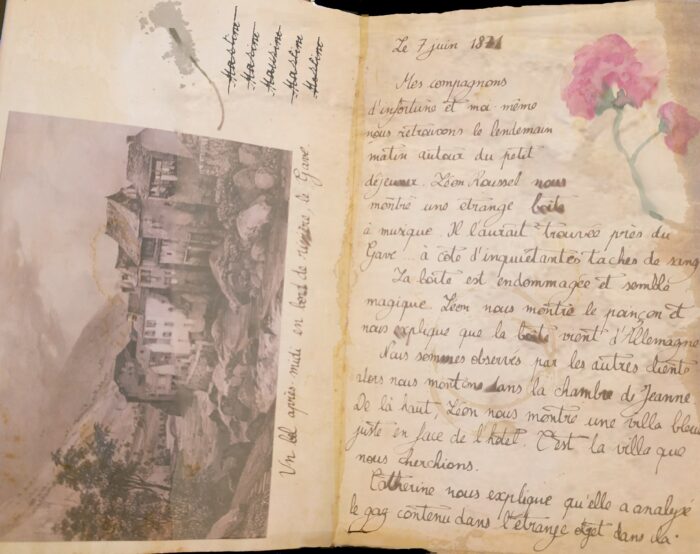 Haslim
Haslim
Haslim
Haslim
Un bel après-midi en bord de rivière, le Gave.
Le 7 juin 1821
Mes compagnons
d'infortune et moi-même
nous retrouvons le lendemain
matin autour du petit
déjeuner. Léon Roussel nous
montre une étrange boîte
à musique. Il l'aurait trouvée près du
Gave... à côté d'inquiétantes taches de sang
La boîte est endommagée et semble
magique. Léon nous montre le poinçon et
nous explique que la boîte vient d'Allemagne
Nous sommes observés par les autres clients
alors nous montons dans la chambre de Jeanne.
De là haut, Léon nous montre une villa bleue
juste en face de l'hotel. C'est la villa que
nous cherchions.
Catherine nous explique qu'elle a analysé
le gaz contenu dans l'étrange objet dans la